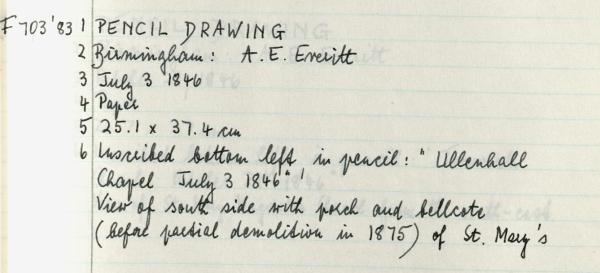 F703'83 1 PENCIL DRAWING
2 Birmingham: A.E. Everitt
3 July 3 1846
4 Paper
5 25.1 x 37.4 cm
6 Inscribed bottom left in pencil: "Ullenhall
Chapel July 3 1846"'
View of south side with porch and bellcote
(before partial demolition in 1875) of St. Mary's